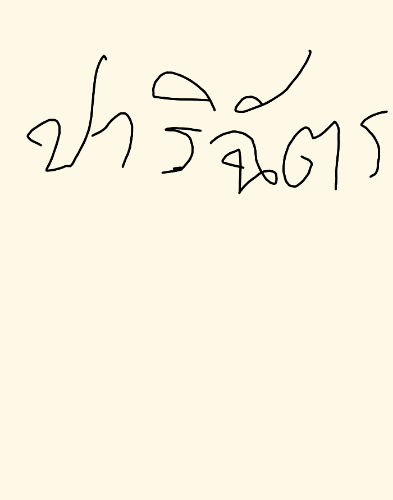 ปาริฉัตร